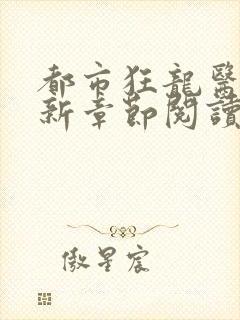 都市狂龍醫
新章節閱讀
傲星宸